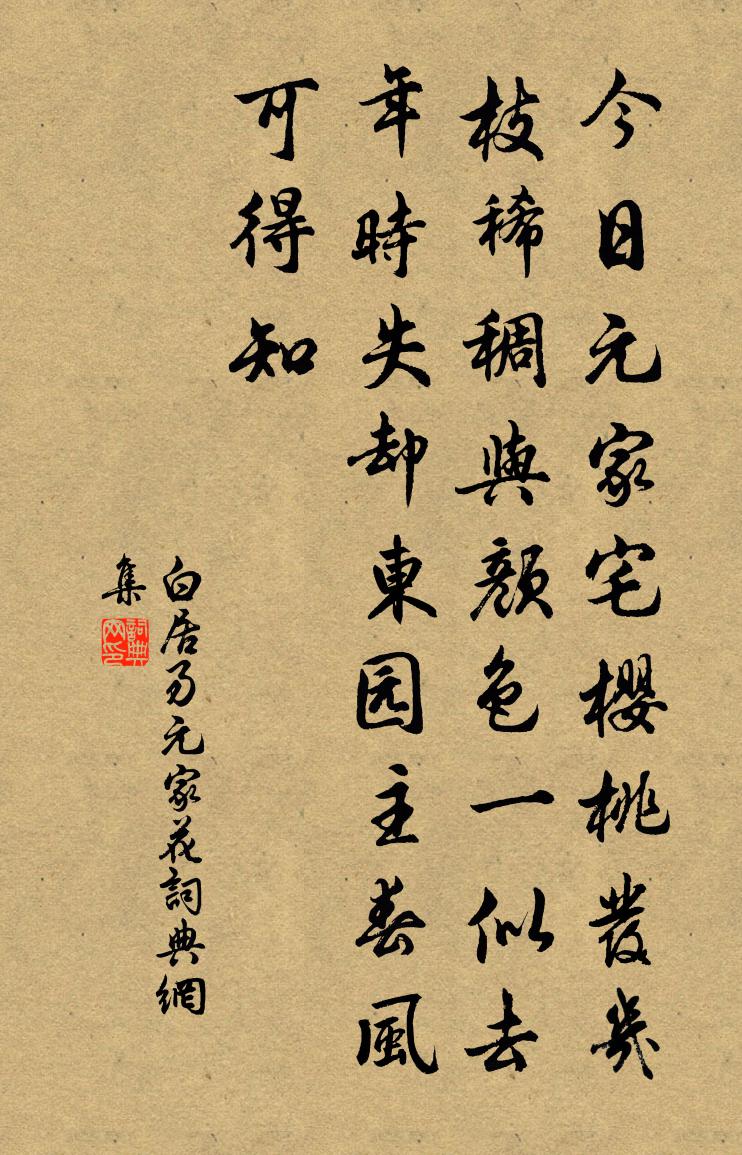 今日元家宅櫻桃發幾
枝稀稠與顔色一似去
年時失却東园主春風
可得知
白居易元家花詞典網
集
詞典
网印